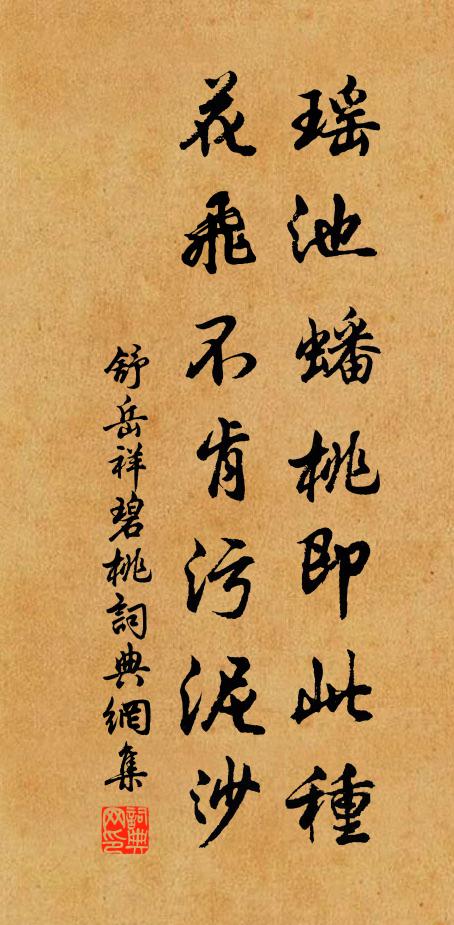 瑶池蟠桃即此種
花飛不肯污泥沙
舒岳祥碧桃詞典網集
詞典网印